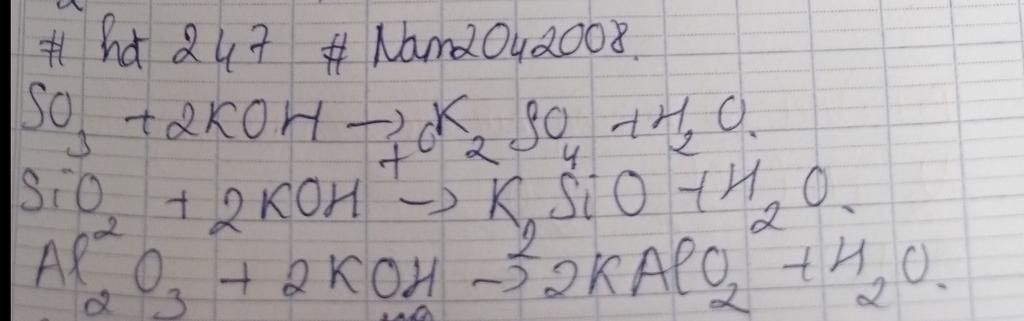 # hdt 247 # Nam2042008.
SO3 + 2KOH → K2SO4 + H2O.
SiO2 + 2KOH → K2SiO + H2O.
Al2O3 + 2KOH → 2KAlO2 + H2O.